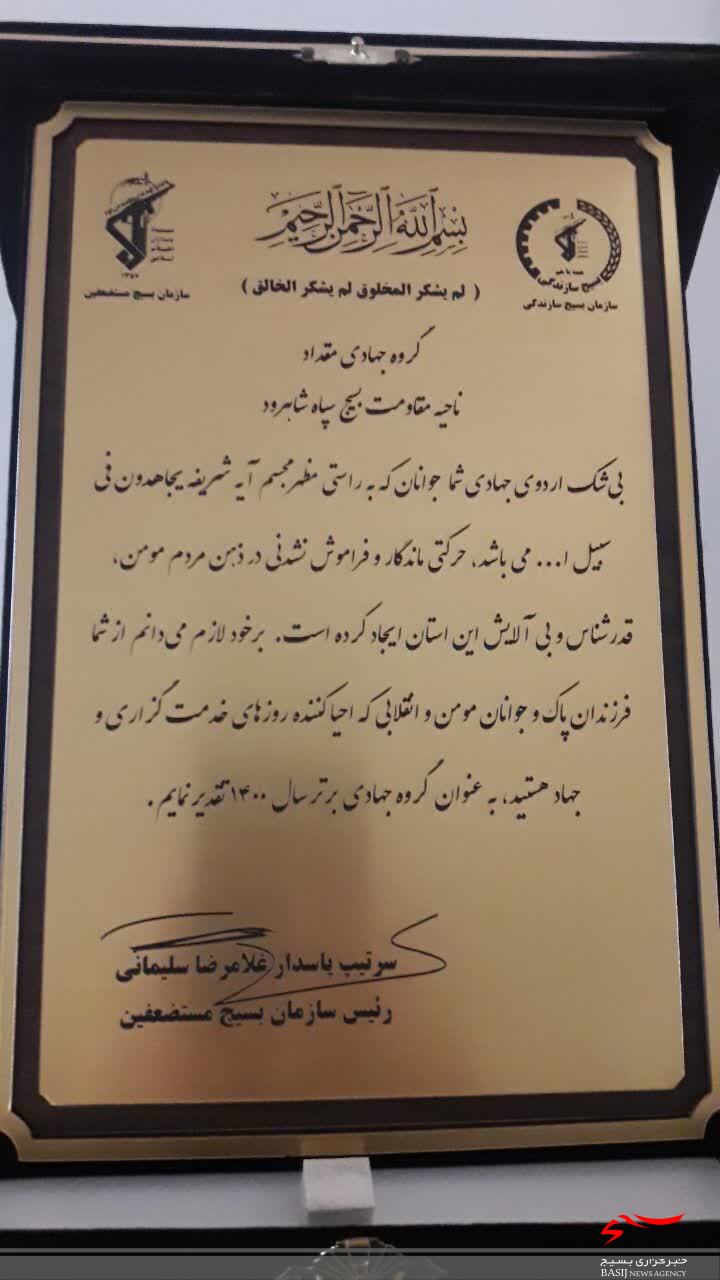 بسم الله الرحمن الرحیم
( لم یشکر المخلوق لم یشکر الخالق )
همه با هم
بسیج سازندگی
سازمان بسیج سازندگی
۱۳۵۷
سازمان بسیج مستضعفین
گروه جهادی مقداد
ناحیه مقاومت بسیج سپاه شاهرود
بی شک اردوی جهادی شما جوانان که به راستی مظهر مجسم آیه شریفه یجاهدون فی
سبیل ا... می باشد، حرکتی ماندگار و فراموش نشدنی در ذهن مردم مومن،
قدرشناس و بی آلایش این استان ایجاد کرده است. برخود لازم می‌دانم از شما
فرزندان پاک و جوانان مومن و انقلابی که احیا کننده روزهای خدمت گزاری و
جهاد هستید، به عنوان گروه جهادی برتر سال ۱۴۰۰ تقدیر نمایم.
سرتیپ پاسدار غلامرضا سلیمانی
رئیس سازمان بسیج مستضعفین
بسیج
خبرگزاری بسیج
BASIJ NEWS AGENCY